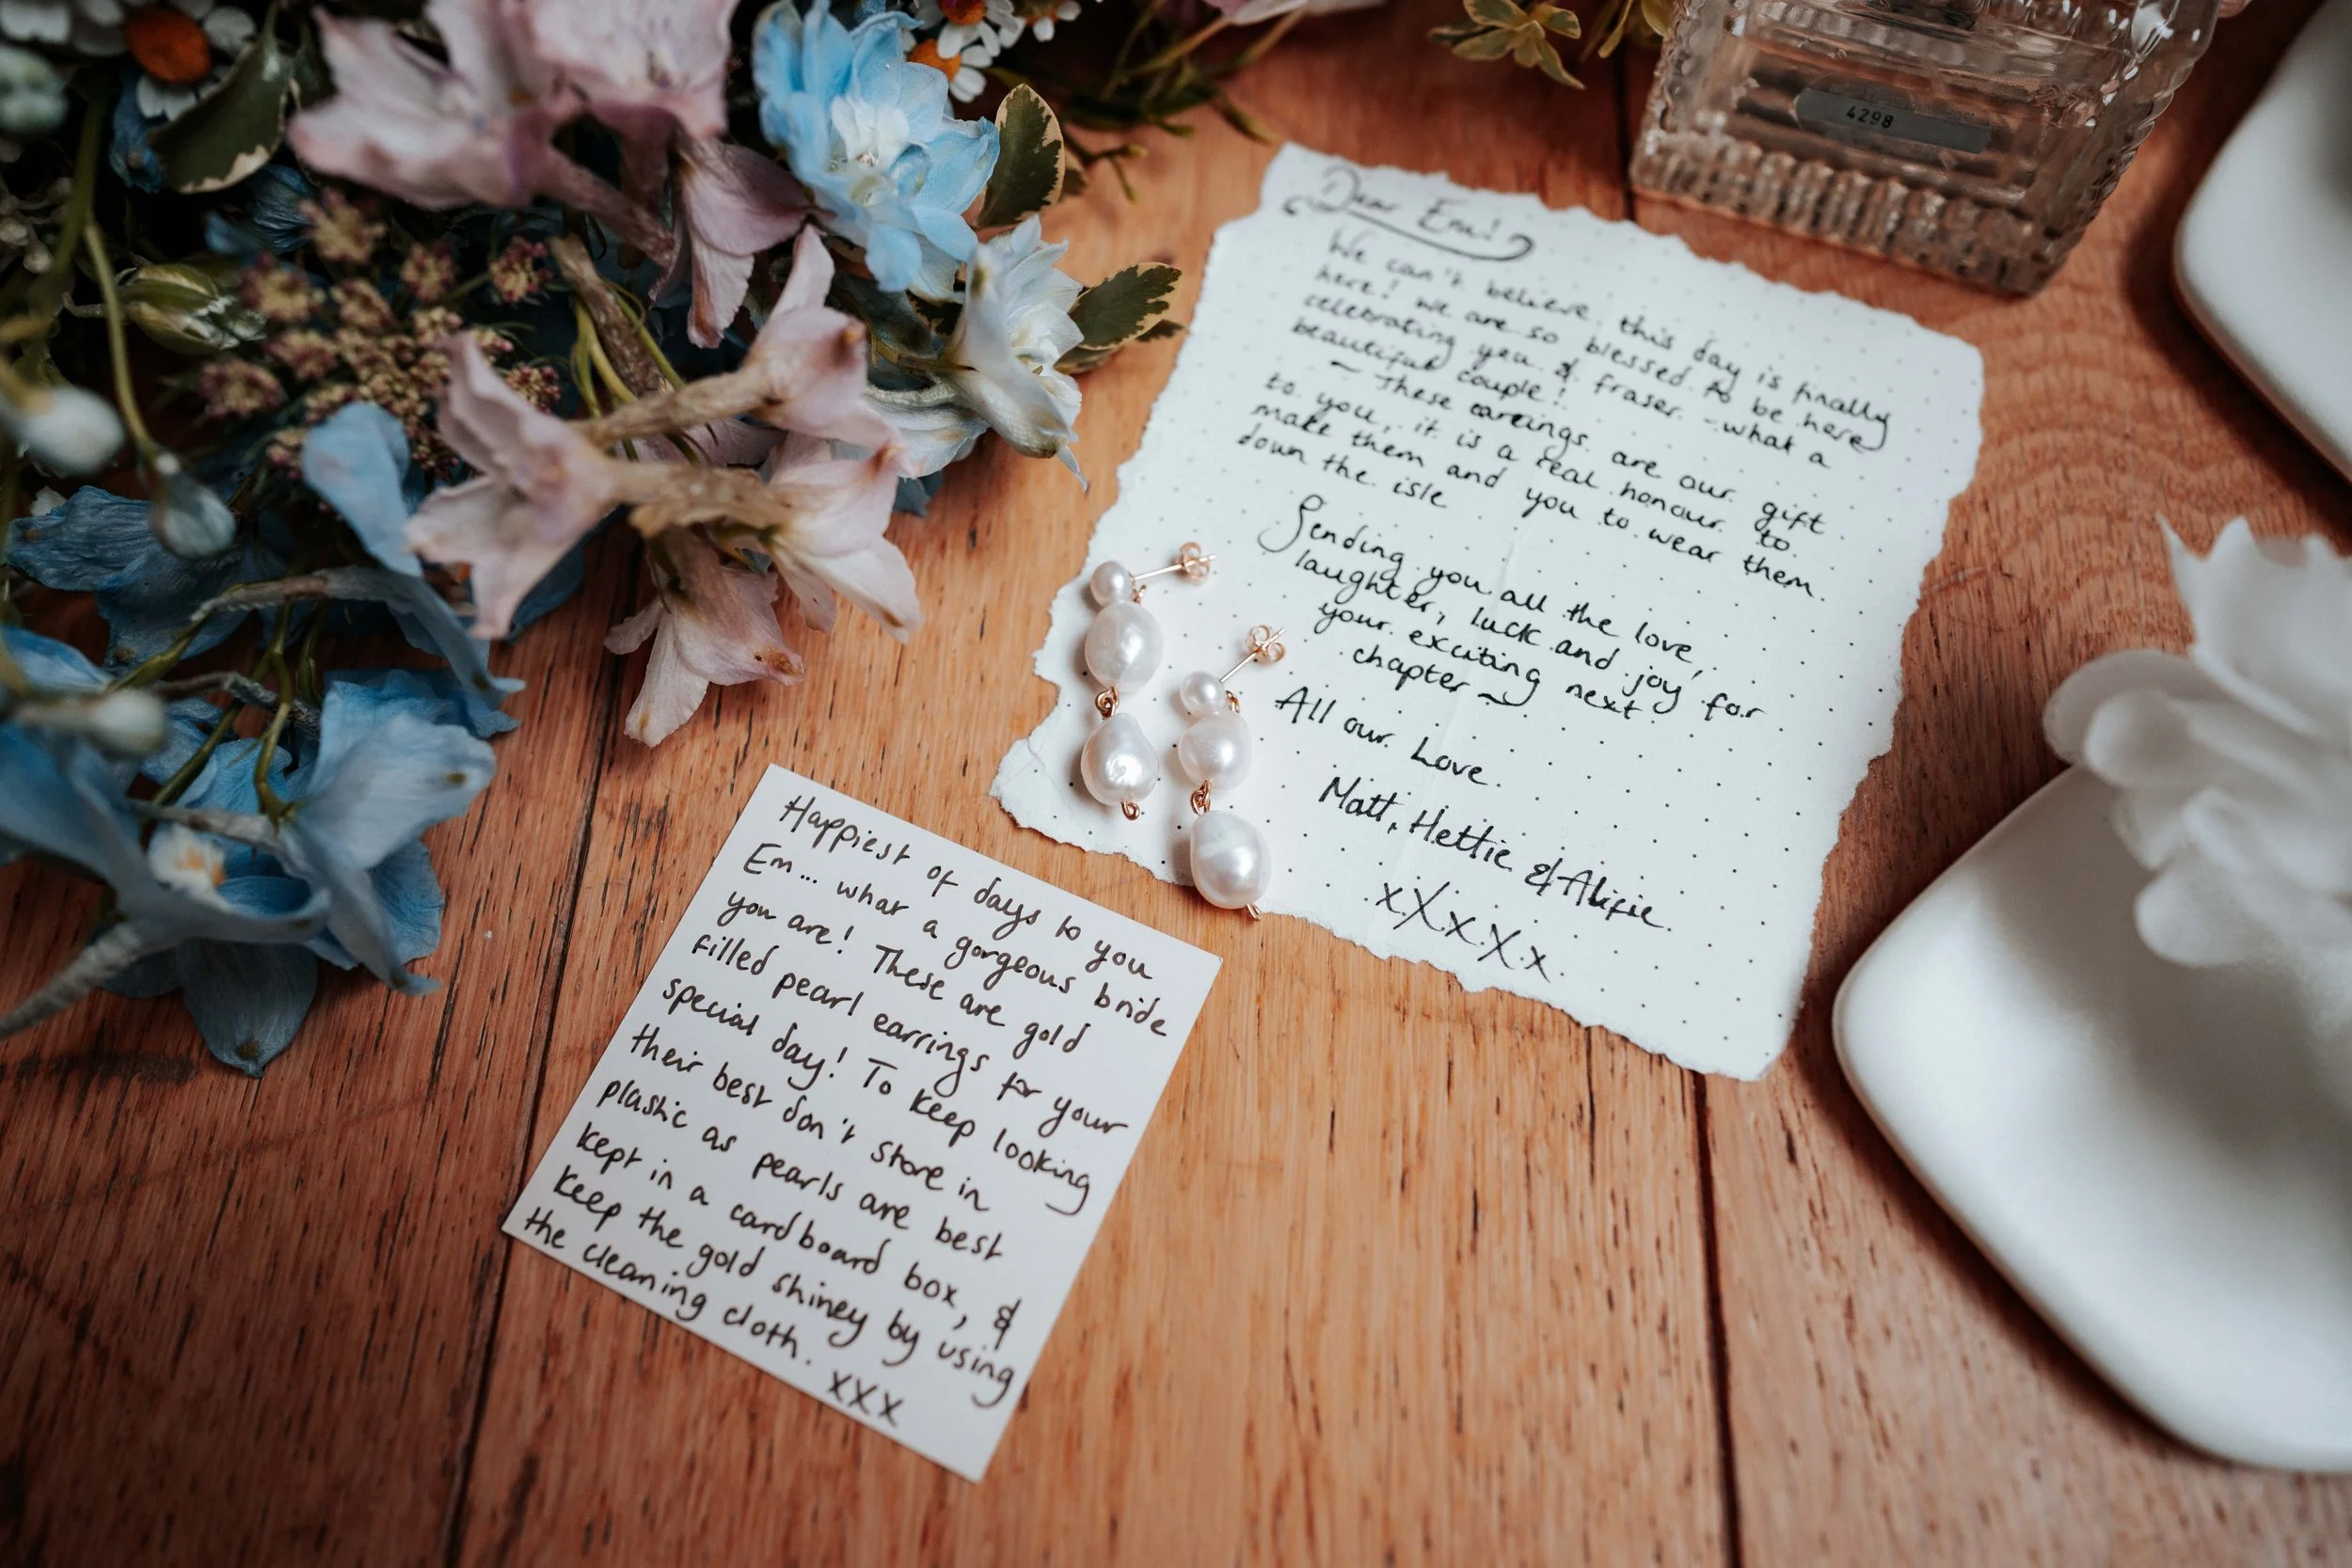 4298
Dear Em!
We can't believe this day is finally
here! we are so blessed to be here
celebrating you & fraser. - what a
beautiful couple!
~ These earrings are our gift
to you, it is a real honour to
make them and you to wear them
down the isle
Sending you all the love,
laughter, luck and joy for
your exciting next
chapter ~
All our Love.
Matt, Hettie & Alfie
xXxXx
Happiest of days to you
Em... what a gorgeous bride
you are! These are gold
filled pearl earrings for your
special day! To keep looking
their best don't store in
plastic as pearls are best
kept in a cardboard box, &
keep the gold shiney by using
the cleaning cloth. xxx